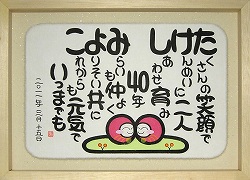 たくさんの笑顔で
けんめいに二人
しあわせ育み
40年
みらいも仲よく
よりそい共に
これからも元気で
いつまでも